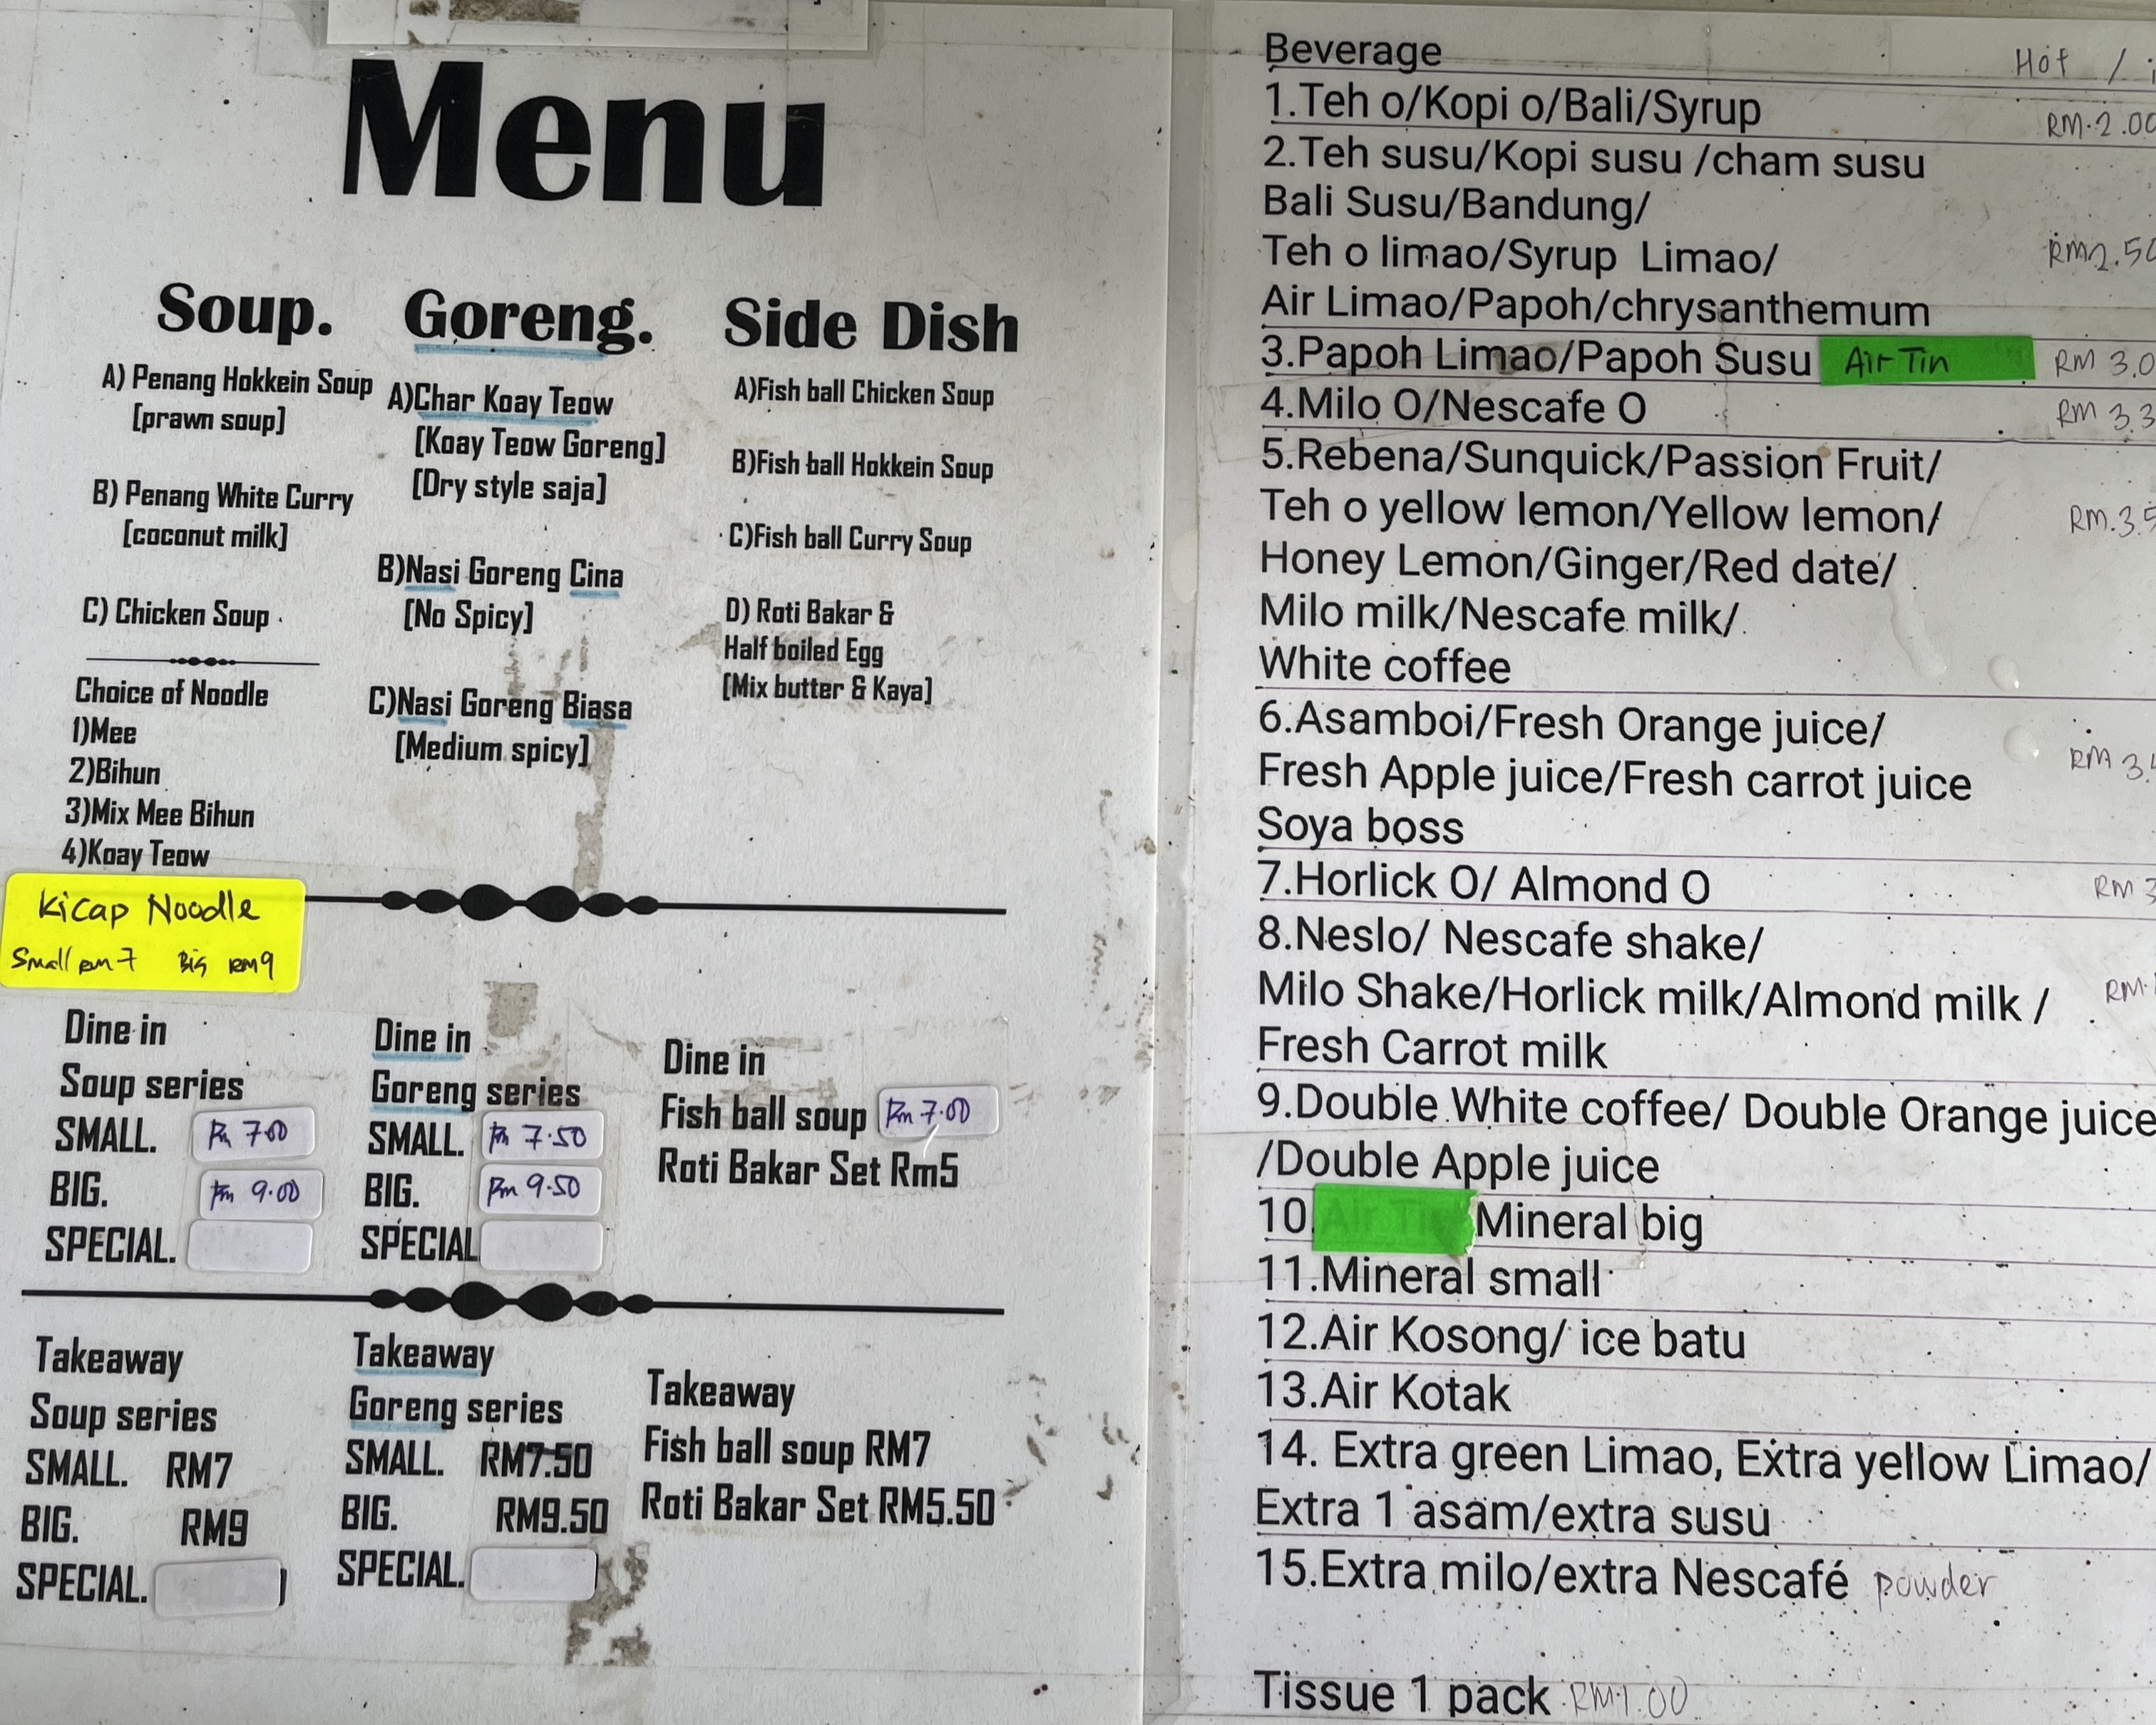 Menu
Soup.
A) Penang Hokkein Soup
[prawn soup]
B) Penang White Curry
[coconut milk]
C) Chicken Soup
Choice of Noodle
1)Mee
2)Bihun
3)Mix Mee Bihun
4)Koay Teow
Kicap Noodle
Small RM7 Big RM9
Goreng.
A)Char Koay Teow
[Koay Teow Goreng]
[Dry style saja]
B)Nasi Goreng Cina
[No Spicy]
C)Nasi Goreng Biasa
[Medium spicy]
Side Dish
A)Fish ball Chicken Soup
B)Fish ball Hokkein Soup
C)Fish ball Curry Soup
D) Roti Bakar &
Half boiled Egg
[Mix butter & Kaya]
Dine in
Soup series
SMALL. Rm 7.00
BIG. Rm 9.00
SPECIAL.
Dine in
Goreng series
SMALL. Rm 7.50
BIG. Rm 9.50
SPECIAL
Dine in
Fish ball soup Rm 7.00
Roti Bakar Set Rm5
Takeaway
Soup series
SMALL. RM7
BIG. RM9
SPECIAL.
Takeaway
Goreng series
SMALL. RM7.50
BIG. RM9.50
SPECIAL.
Takeaway
Fish ball soup RM7
Roti Bakar Set RM5.50
Beverage Hot /
1.Teh o/Kopi o/Bali/Syrup RM.2.00
2.Teh susu/Kopi susu /cham susu
Bali Susu/Bandung/
Teh o limao/Syrup Limao/ RM2.50
Air Limao/Papoh/chrysanthemum
3.Papoh Limao/Papoh Susu Air Tin RM 3.0
4.Milo O/Nescafe O RM 3.3
5.Rebena/Sunquick/Passion Fruit/
Teh o yellow lemon/Yellow lemon/ RM.3.5
Honey Lemon/Ginger/Red date/
Milo milk/Nescafe milk/
White coffee
6.Asamboi/Fresh Orange juice/
Fresh Apple juice/Fresh carrot juice RM 3.
Soya boss
7.Horlick O/ Almond O RM 3
8.Neslo/ Nescafe shake/
Milo Shake/Horlick milk/Almond milk / RM.
Fresh Carrot milk
9.Double White coffee/ Double Orange juice
/Double Apple juice
10. Mineral big
11.Mineral small
12.Air Kosong/ ice batu
13.Air Kotak
14. Extra green Limao, Extra yellow Limao/
Extra 1 asam/extra susu
15.Extra milo/extra Nescafé powder
Tissue 1 pack RM1.00